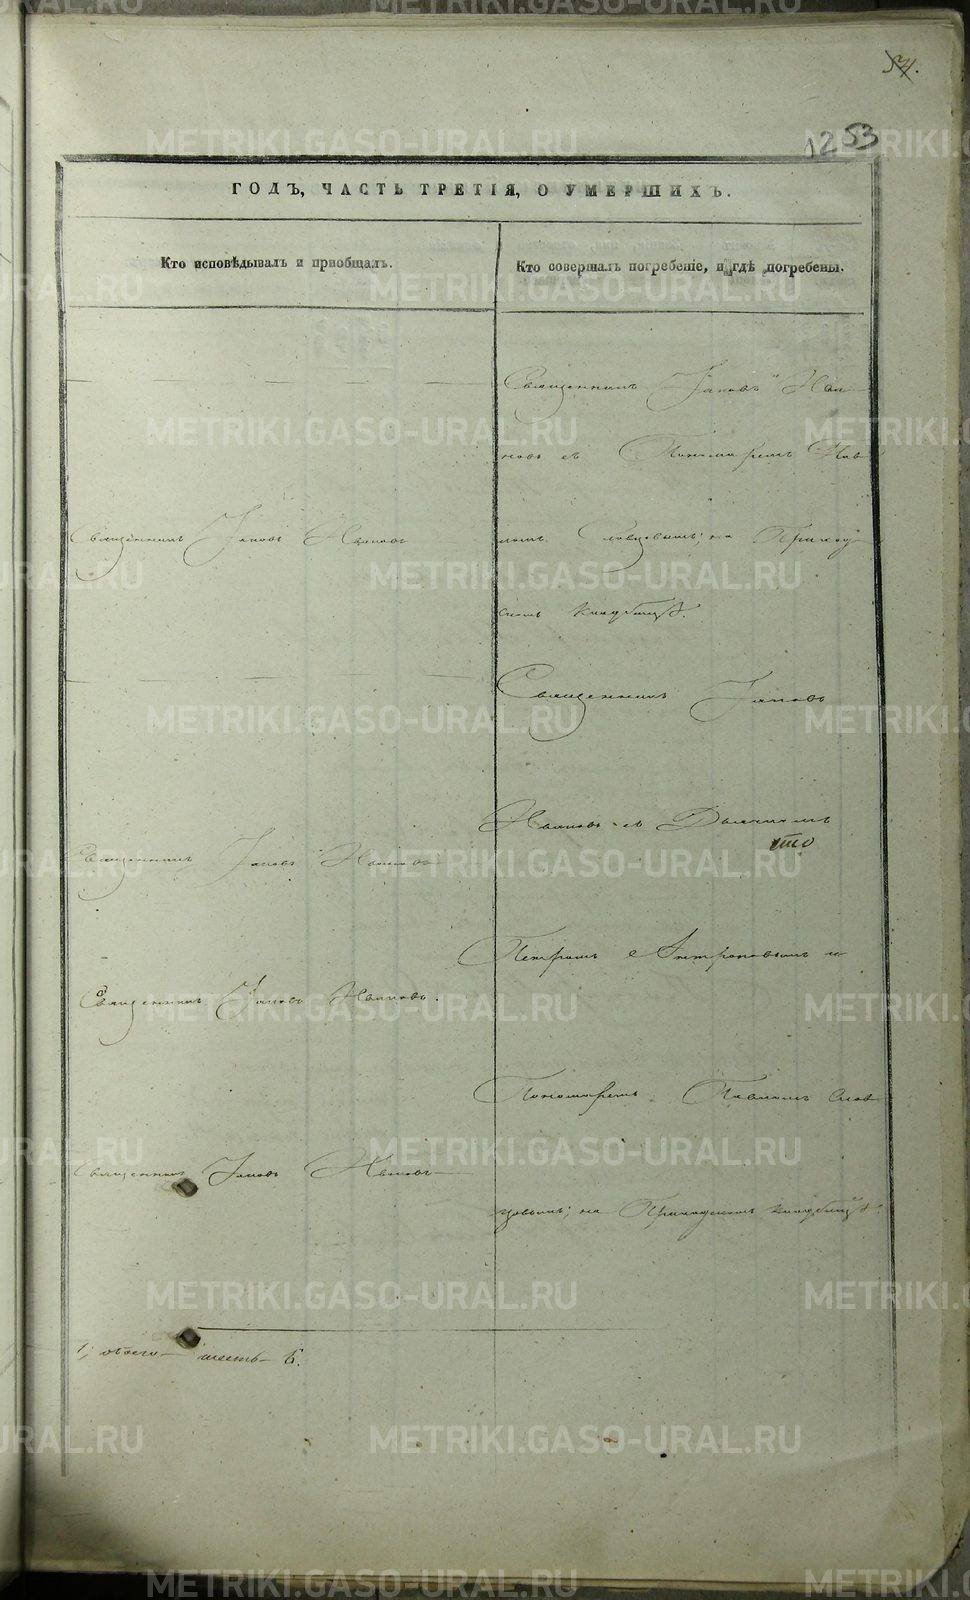 1253
ГОДЪ, ЧАСТЬ ТРЕТІЯ, О УМЕРШИХЪ.
Кто исповѣдывалъ и пріобщалъ.
Кто совершалъ погребеніе, и гдѣ погребены.
Священникъ Іаковъ Ива
новъ съ Пономаремъ Пав
ломъ Словцовымъ; на Приход
скомъ кладбищѣ.
Священникъ Іаковъ
Ивановъ съ Дьячкомъ
Петромъ Антроповымъ и
Пономаремъ Павломъ Слов
цовымъ; на Приходскомъ кладбищѣ.
Священникъ Іаковъ Ивановъ
Священникъ Іаковъ Ивановъ
Священникъ Іаковъ Ивановъ.
Священникъ Іаковъ Ивановъ
1; обоего шесть 6.
METRIKI.GASO-URAL.RU